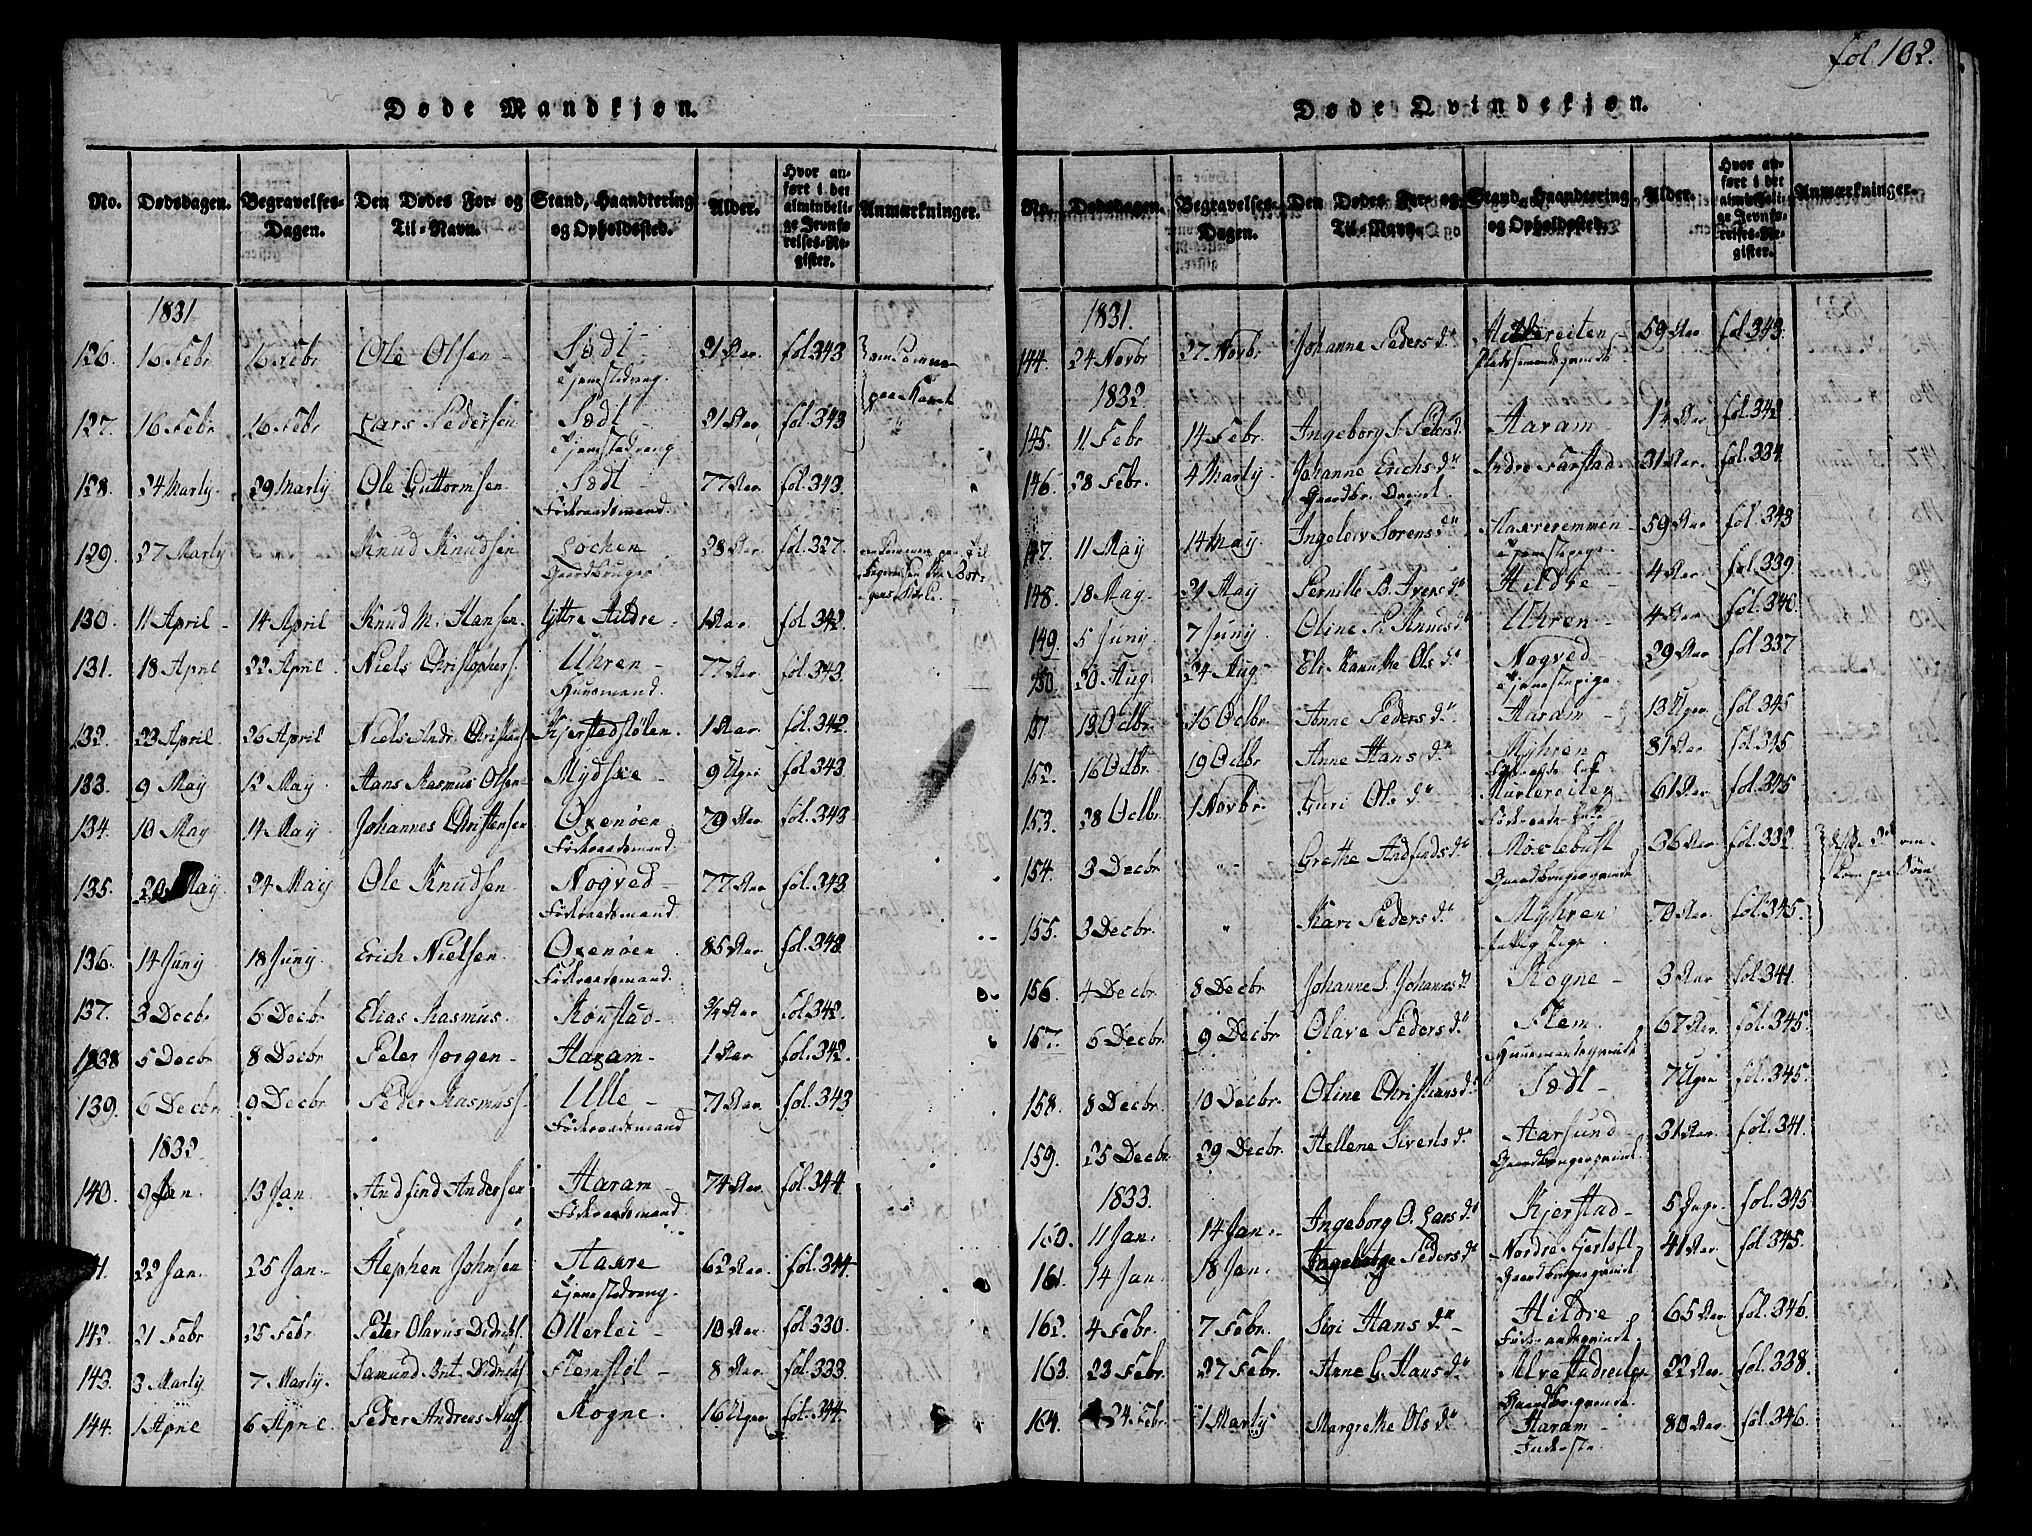 fol 102.
Døde Mandkjøn.
No. Dødsdagen. Begravelses-Dagen. Den Dødes For- og Til-Navn. Stand, Haandtering og Opholdssted. Alder. Hvor anført i det almindelige Jevnførelses-Register. Anmærkninger.
1831
126. 16 Febr 16 Febr Ole Olsen Sødt 21 Aar. fol. 343
Tjenestedreng.
127. 16 Febr 16 Febr Lars Pedersen Sødt 21 Aar. fol. 343
Tjenestedreng
128. 24 Marty. 29 Marty. Ole Guttormsen Sødt 77 Aar fol. 343.
Föderaadsmand.
129. 27 Marty Knud Knudsen Lochen 28 Aar. fol. 327.
Gaardbruger
130. 11 April 14 April Knud M. Hansen. Yttre Hildre. 1 Aar. fol. 342.
131. 18 April 22 April Niels Christophers. Uhren 77 Aar. fol. 343.
Huusmand.
132. 23 April. 26 April Niels Andr. Christians Kjerstadstølen. 1 Aar. fol. 342.
133. 9 May 12 May. Hans Rasmus Olsen 9 Uger fol. 343.
134. 10 May 14 May. Johannes Christensen Oxenøen 79 Aar. fol. 343.
Föderaadsmand.
135. 20 May 24 May Ole Knudsen Nogved 77 Aar fol. 343
Föderaadsmand.
136. 14 Juny 18 Juny. Erich Nielsen. Oxenøen 85 Aar fol. 343
Föderaadsmand.
137. 3 Decbr 6 Decbr Elias Rasmus. Rønstad 3/4 Aar fol. 342.
138 5 Decbr 8 Decbr Peter Jørgen Haram 1 Aar fol. 342.
139. 6 Decbr 9 Decbr Peder Rasmuss. Ulle 71 Aar. fol. 343
Föderaadsmand
1832
140. 9 Jan. 13 Jan. Andfind Andersen Haram 74 Aar. fol. 344.
Föderaadsmand.
141. 22 Jan. 25 Jan. Stephen Johnsen 62 Aar. fol. 344
Tjenestedreng.
142. 21 Febr 25 Febr Peter Olavus Didrichs. Otterlei 10 Aar fol. 330.
143. 3 Marty 7 Marty. Samund Bnt. Didrichs. Flemstøl 8 Aar fol. 333.
144. 1 April 6 April Peder Andreas Rogne. 16 Uger fol. 344.
Døde Qvindekjøn.
No. Dødsdagen. Begravelses-Dagen. Den Dødes For- og Til-Navn. Stand, Haandtering og Opholdssted. Alder. Hvor anført i det almindelige Jevnførelses-Register. Anmærkninger.
1831.
144. 24 Novbr 27 Novbr. Johanne Peders dr. Hildrereiten 59 Aar fol. 343.
Pladsemandsqvinde
1832
145. 11 Febr. 14 Febr. Ingeborg S. Peders d. Haram 14 Aar fol. 342.
146. 28 Febr. 4 Marty. Johanne Erichs dr. Indre Farstad 31 Aar. fol. 334.
Gaardbr. Qvinde.
147. 11 May 14 May. Ingelev Sørens dr. 59 Aar. fol. 343
Tjenestepige.
148. 18 May. 21 May Pernille B. Ivers dr. Hildre 4 Aar. fol. 339
149. 5 Juny. 7 Juny. Oline P. Knuds dr. Uhren 4 Aar fol. 340.
150 20 Aug. 24 Aug. Eli Ols dr. Nogved 29 Aar fol. 337
Tjenestepige.
151 13 Octbr. 16 Octbr. Anne Peders dr. Haram 13 Uger. fol. 345
152. 16 Octbr. 19 Octbr. Anne Hans dr. Myhren 81 Aar. fol. 345
153. 28 Octbr. 1 Novbr. Guri Ols dr. 61 Aar. fol. 345
154. 3 Decbr Grethe Andfinds dr. Moxlebust 36 Aar. fol. 332
Gaardbrugerqvinde
155. 3 Decbr. " Kari Peders dr. Myhren 70 Aar. fol. 345.
fattig Pige.
156. 4 Decbr. 8 Decbr Johanne S. Johannes d. Rogne 3 Aar fol. 341.
157. 6 Decbr. 9 Decbr. Olave Peders dr. Flem. 67 Aar. fol. 345.
Huusmandsqvinde
158. 8 Decbr. 10 Decbr. Oline Christians d. Sødt 7 Uger fol. 345.
159. 25 Decbr 29 Decbr. Hellene Siverts dr. Aarsund 31 Aar. fol. 341.
Gaardbrugerqvinde.
1833.
160. 11 Jan. 14 Jan. Ingeborg O. Lars d. Kjerstad 5 fol. 345
161. 14 Jan. 18 Jan. Ingeborg Peders dr. Nordre Fjertoft 41 Aar. fol. 345.
Gaardbrugerqvinde
162. 4 Febr. 7 Febr. Siri Hans dr. Hildre 65 Aar. fol. 346.
Föderaadsqvinde.
163. 23 Febr. 27 Febr. Anne G. Hans dr. 22 Aar. fol. 338.
Gaardbrqvinde.
164. 24 Febr. 1 Marty Margrethe Ols dr. Haram 80 Aar fol. 346.